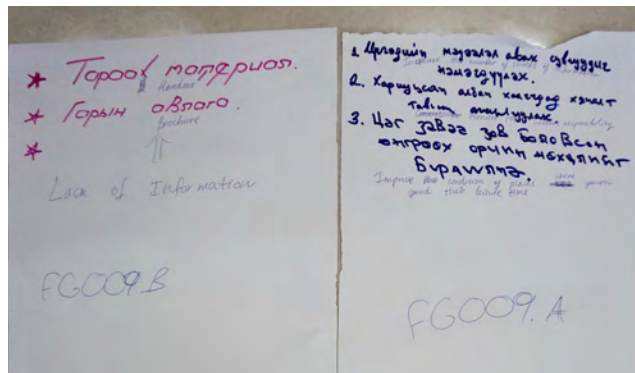 * Тараах материал.
Handout
* Гарын авлага.
Brochure
*
Lack of Information
FG009.B
1. Иргэдийн мэдээлэл авах сувгуудыг
Increase the number of
нэмэгдүүлэх.
2. Хариуцсан албан хаагчдад хяналт
тавьж ажиллуулах.
3. Цаг заваа зөв боловсон
өнгрөөх орчин нөхцлийг
бүрдүүлэх.
Improve the condition of places where youth
spend their leisure time
FG009.A